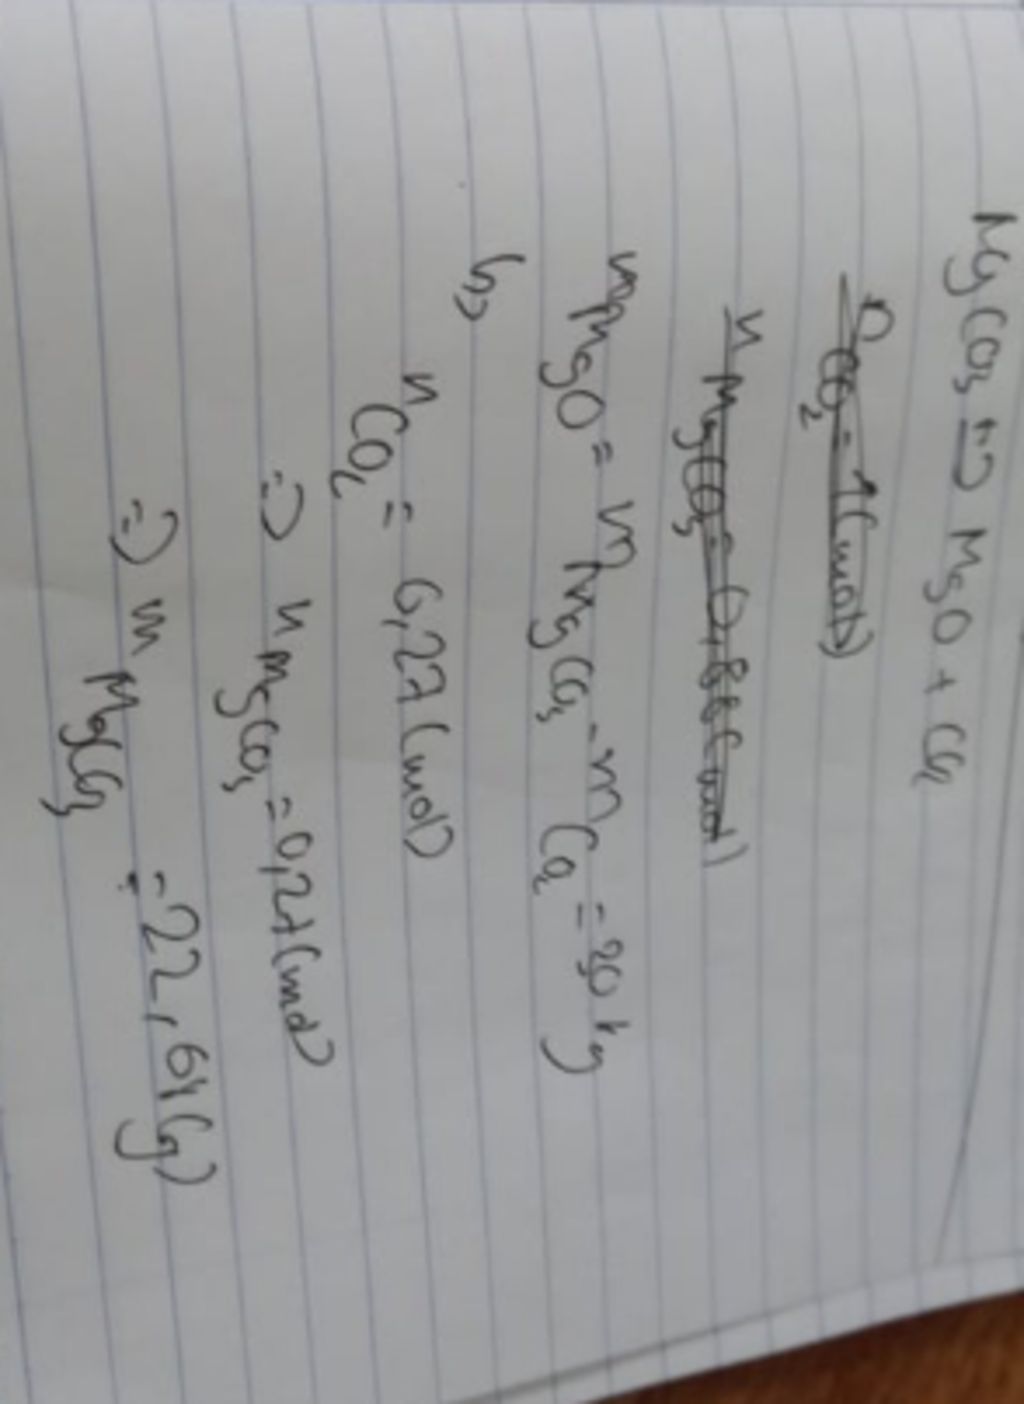 MgCO3 t→ MgO + CO2
nCO2 = 1(mol)
nMgCO3 = 0,88(mol)
mMgO = mMgCO3 - mCO2 = 30 kg
b,
nCO2 = 0,27(mol)
=> nMgCO3 = 0,27(mol)
=> mMgCO3 = 22,64(g)